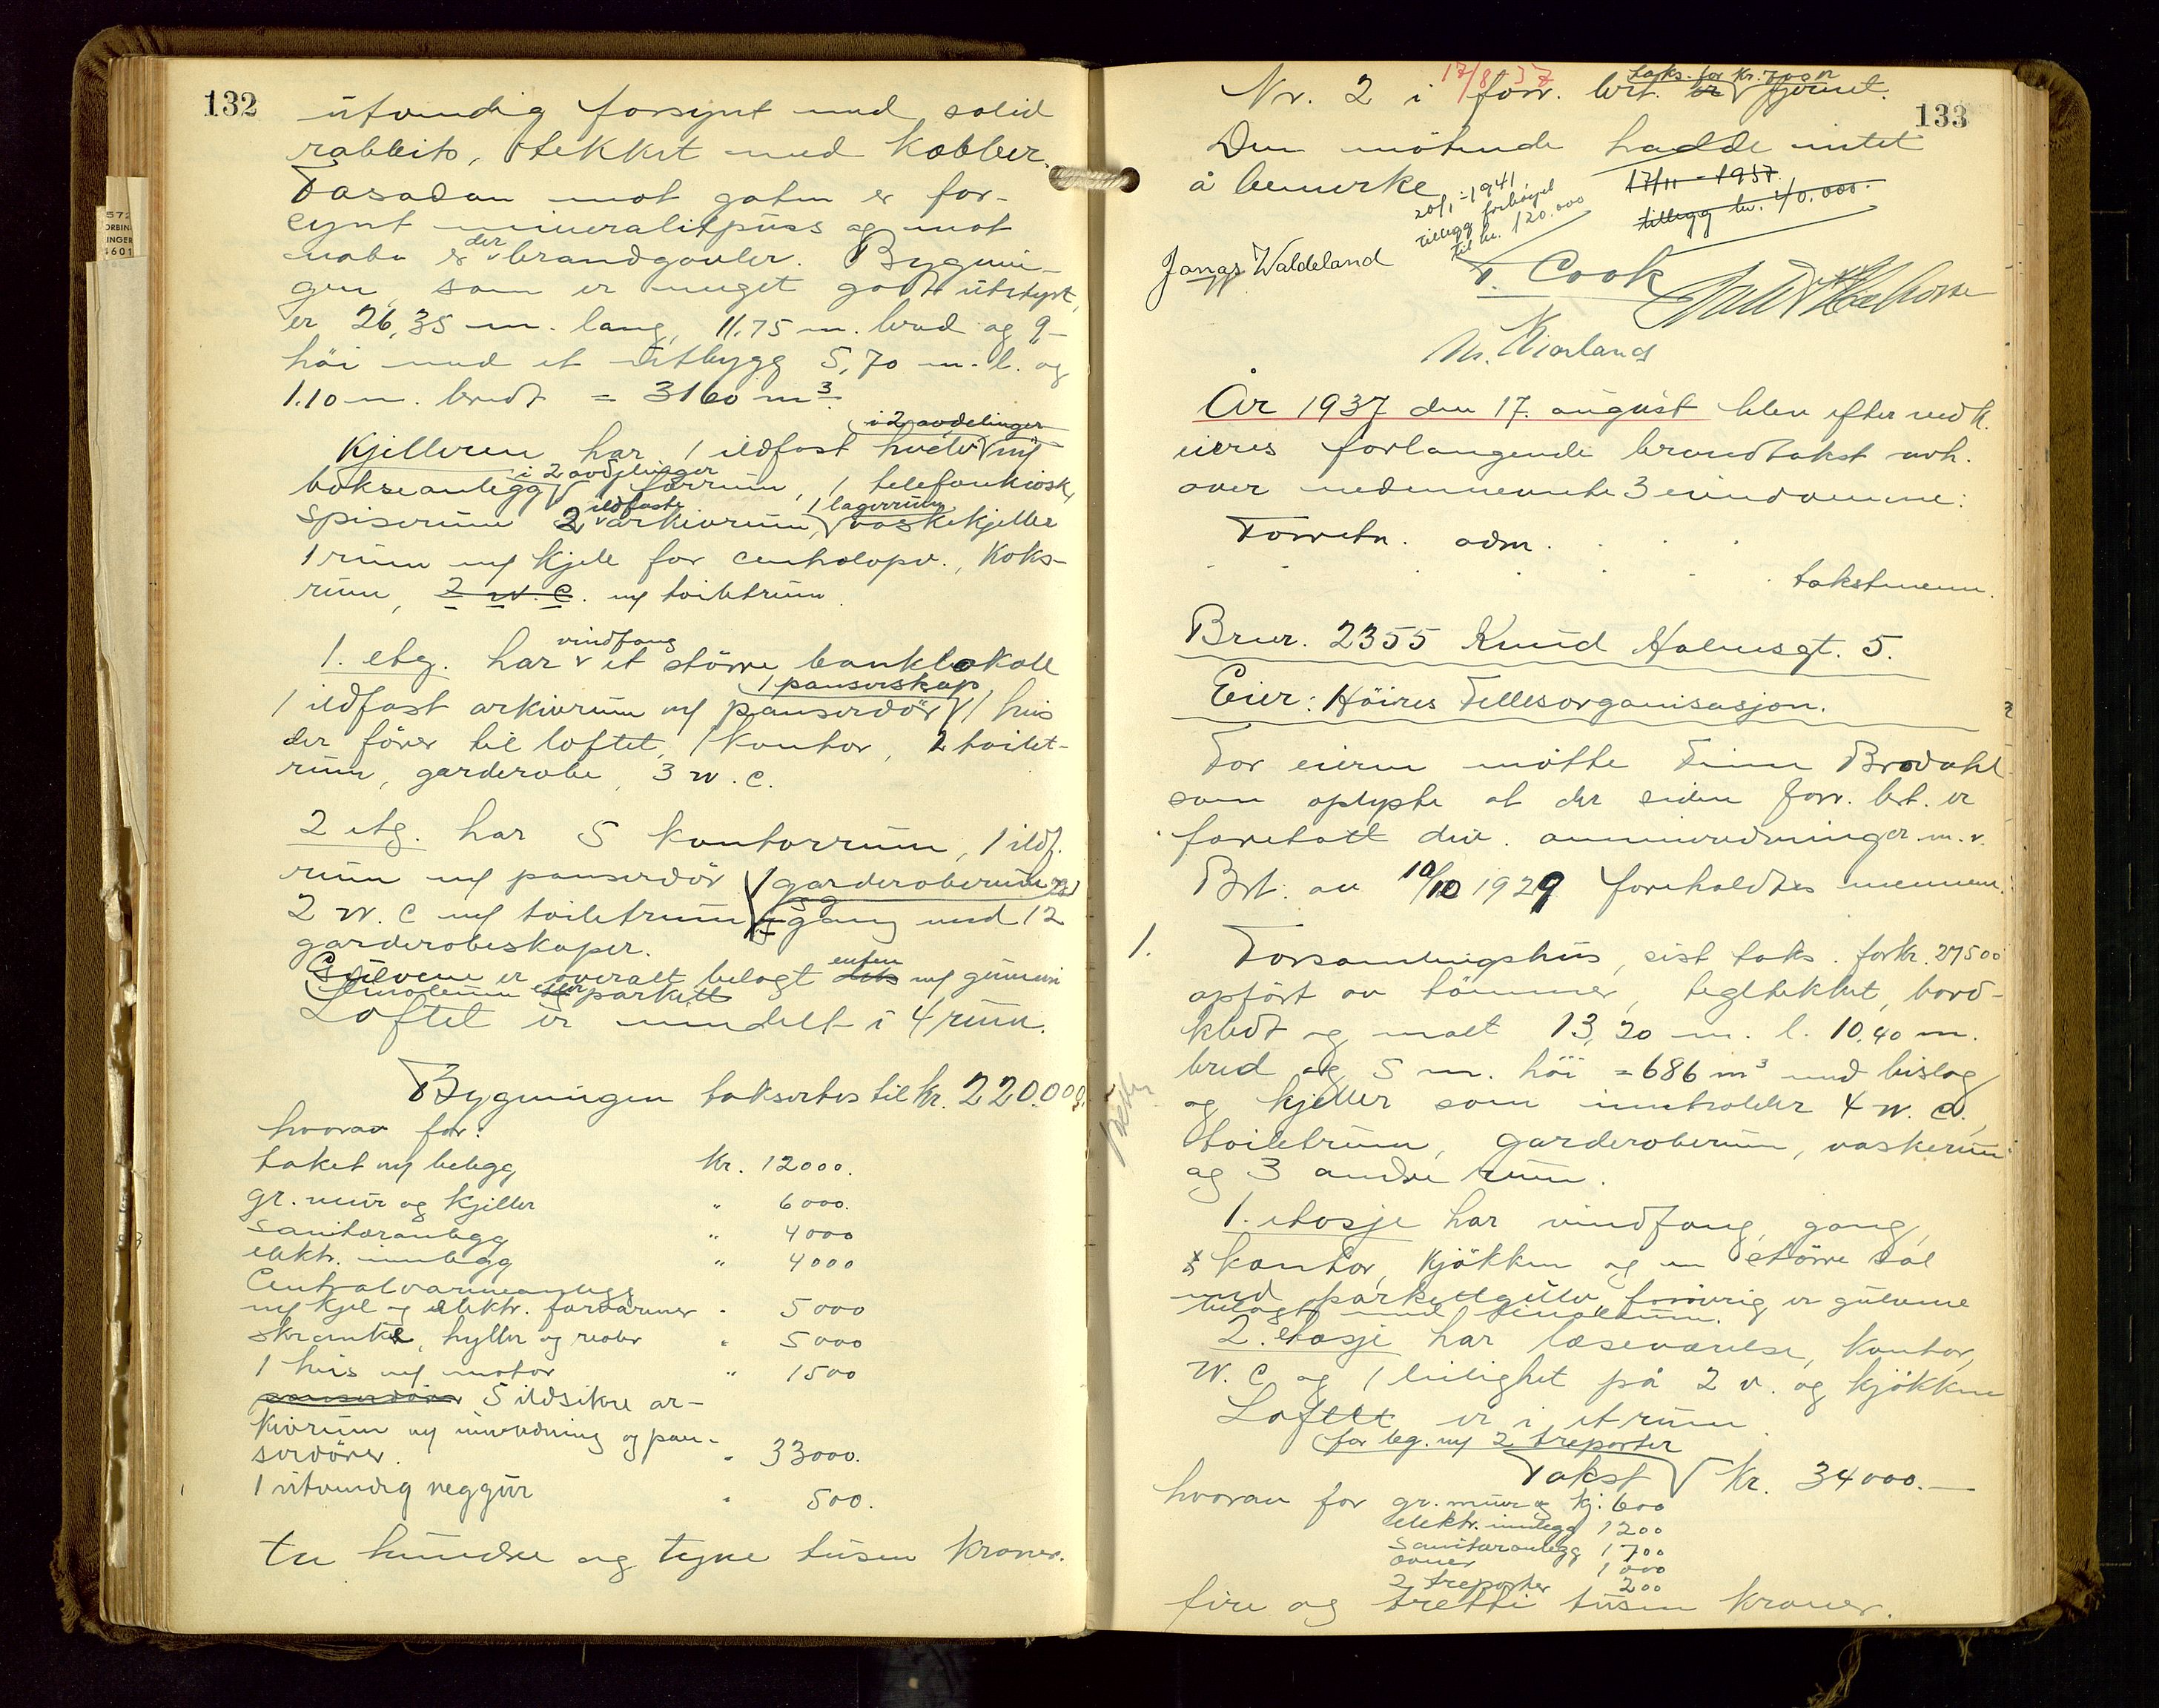 132
utvendig forsynt med solid
rabbits, tekket med kobber.
Fasaden mot gaten er for-
synt mineralitpuss og mot
nabo er der brandgavler. Bygnin-
gen, som er meget godt utstyrt,
er 26,35 m. lang, 11.75 m. bred og 9-
höi med et utbygg 5,70 m. l. og
1.10 m. bredt = 3160 m³.
i 2 avdelinger
Kjelleren har 1 ildfast hvelv m/
i 2 avdelinger
bokseanlegg 1 forrum, 1 telefonkiosk,
ildfaste 1 lagerrum
spiserum 2 arkivrum, vaskekjeller
1 rum m/ kjele for centralopv., Koks-
rum, 2 W.C. m/ toiletrum
vindfang
1. etg. har et större banklokale
1 panserskap
1 ildfast arkivrum m/ panserdör 1 heis
der förer til loftet, 1 kontor, 2 toilet-
rum, garderobe, 3 W.C.
2 etg. har 5 kontorrum, 1 ildf.
rum m/ panserdör 1 garderoberum og
2 W.C m/ toiletrum gang med 12
garderobeskaper.
Gulvene er overalt belagt enten m/ gummi
linoleum eller parkett
Loftet er inndelt i 4 rum.
Bygningen taksertes til kr. 220.000.
hvorav for:
taket m/ belegg Kr. 12000.
gr. mur og kjeller " 6000.
Sanitæranlegg " 4000
elektr. innlegg " 4000
Centralvarmeanlegg
m/ kjel og elektr. forvarmer " 5000
Skranke, hyller og reoler " 5000
1 heis m/ motor " 1500
panserdörer 5 ildsikre ar-
kivrum m/ innredning og pan-
serdörer. " 33000.
1 utvendig veggur " 500.
to hundre og tyve tusen kroner.
133
17/8-37
taks. for kr. 7000
Nr. 2 i forr. brt. er fjernet.
Den mötende hadde intet
å bemerke
20/1-1941
tillegg forhöiet
til kr. 120.000
17/11-1937
tillegg kr. 40.000.
Jonas Waldeland
T. Cook
M. Kiorland
År 1937 den 17. august blev efter vedk.
eieres forlangende brandtakst avh.
over nedennevnte 3 eiendomme:
Forretn. adm.
takstmenn.
Brnr. 2355 Knud Holmsgt. 5.
Eier: Höires Fellesorganisasjon.
For eieren mötte Finn Brodahl
som oplyste at der siden forr. brt. er
foretatt div. ominnredninger m.v.
Brt. av 10/10 1929 foreholdtes mennene.
1. Forsamlingshus, sist taks. for kr. 27500
opfört av tömmer, tegltekket, bord-
kledt og malt 13,20 m. l. 10,40 m.
bred og 5 m. höi = 686 m³ med bislag
og kjeller som inneholder 4 W.C.
toiletrum, garderoberum, vaskerum
og 3 andre rum.
1. etasje har vindfang, gang,
kontor, kjökken og en större sal
med parkettgulv forövrig er gulvene
belagt med linoleum.
2. etasje har læseværelse, kontor,
W.C og 1 leilighet på 2 v. og kjökken
Loftet er i et rum.
for beg. m/ 2 treporter
Takst Kr. 34000.-
hvorav for gr. mur og kj. 600
elektr. innlegg 1200
sanitæranlegg 1700
ovner 1000
2 treporter 200
fire og tretti tusen kroner.